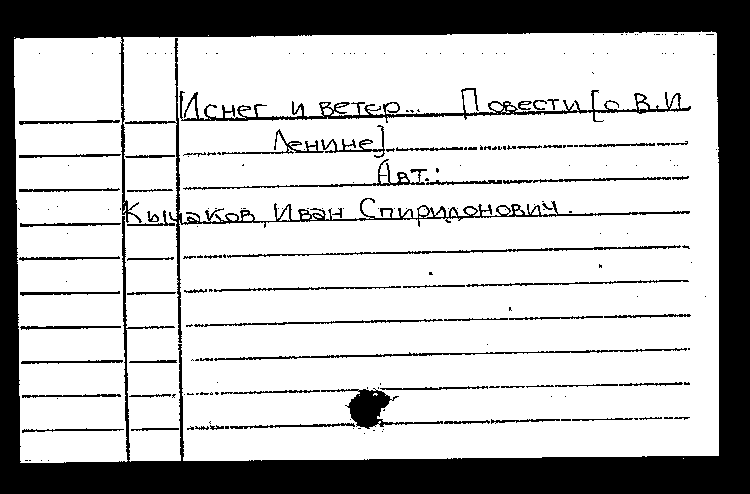 И снег и ветер... Повести [о В.И.
Ленине]
Авт.:
Кычаков, Иван Спиридонович.